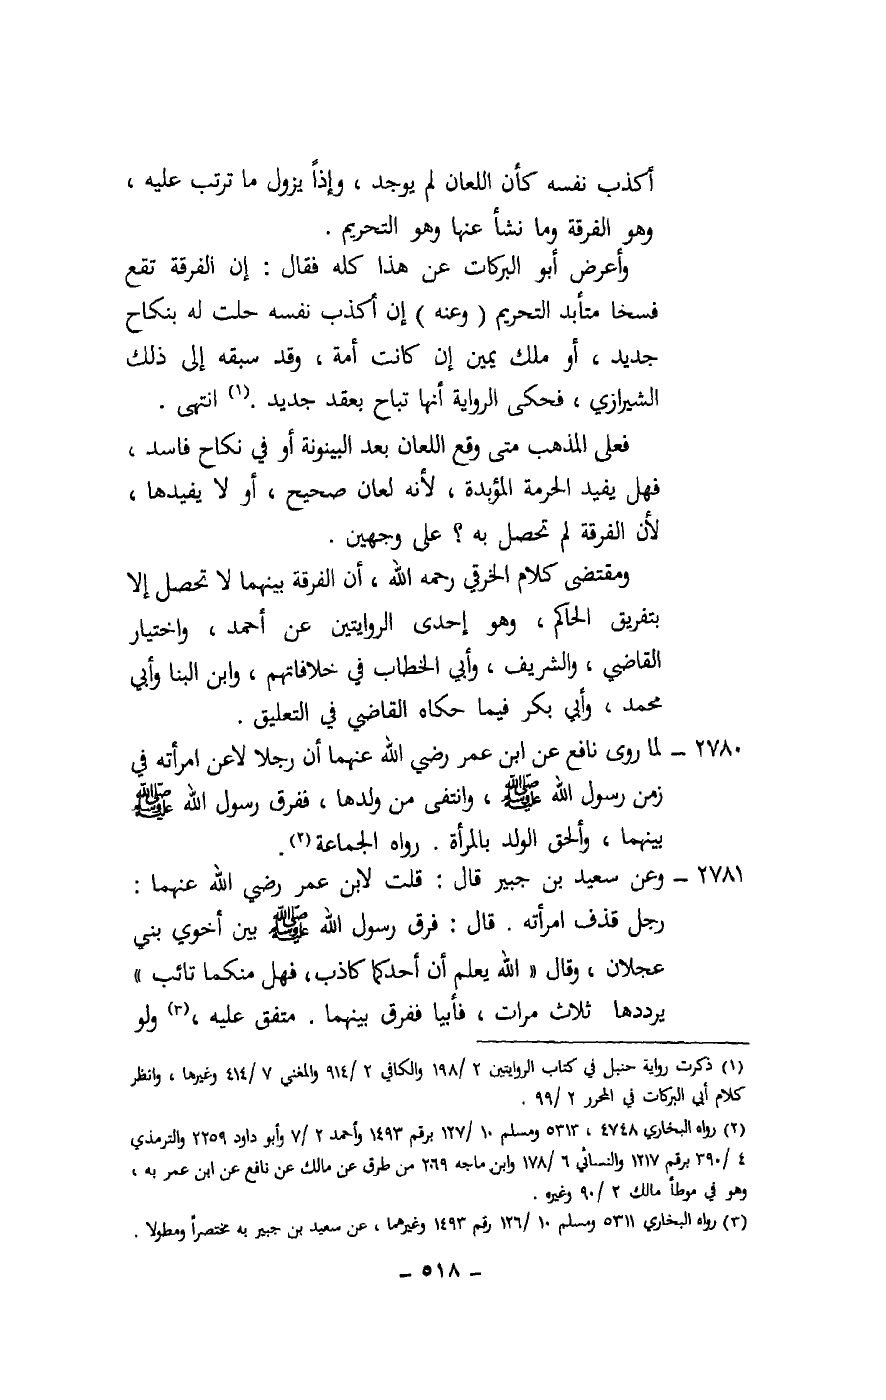 أكذب نفسه كأن اللعان لم يوجد ، وإذاً يزول ما ترتب عليه ،
وهو الفرقة وما نشأ عنها وهو التحريم .
وأعرض أبو البركات عن هذا كله فقال : إن الفرقة تقع
فسخا متأبد التحريم ( وعنه ) إن أكذب نفسه حلت له بنكاح
جديد ، أو ملك يمين إن كانت أمة ، وقد سبقه إلى ذلك
الشيرازي ، فحكى الرواية أنها تباح بعقد جديد .(١) انتهى .
فعلى المذهب متى وقع اللعان بعد البينونة أو في نكاح فاسد ،
فهل يفيد الحرمة المؤبدة ، لأنه لعان صحيح ، أو لا يفيدها ،
لأن الفرقة لم تحصل به ؟ على وجهين .
ومقتضى كلام الخرقي رحمه الله ، أن الفرقة بينهما لا تحصل إلا
بتفريق الحاكم ، وهو إحدى الروايتين عن أحمد ، واختيار
القاضي ، والشريف ، وأبي الخطاب في خلافاتهم ، وابن البنا وأبي
محمد ، وأبي بكر فيما حكاه القاضي في التعليق .
٢٧٨٠ ــ لما روى نافع عن ابن عمر رضي الله عنهما أن رجلا لاعن امرأته في
زمن رسول الله ﷺ ، وانتفى من ولدها ، ففرق رسول الله ﷺ
بينهما ، وألحق الولد بالمرأة . رواه الجماعة(٢) .
٢٧٨١ ــ وعن سعيد بن جبير قال : قلت لابن عمر رضي الله عنهما :
رجل قذف امرأته . قال : فرق رسول الله ﷺ بين أخوي بني
عجلان ، وقال « الله يعلم أن أحدكما كاذب، فهل منكما تائب »
يرددها ثلاث مرات ، فأبيا ففرق بينهما . متفق عليه ،(٣) ولو
(١) ذكرت رواية حنبل في كتاب الروايتين ٢ /١٩٨ والكافي ٢ /٩١٤ والمغني ٧ /٤١٤ وغيرها ، وانظر
كلام أبي البركات في المحرر ٢ /٩٩ .
(٢) رواه البخاري ٤٧٤٨ ، ٥٣١٣ ومسلم ١٠ /١٢٧ برقم ١٤٩٣ وأحمد ٢ /٧ وأبو داود ٢٢٥٩ والترمذي
٤ /٣٩٠ برقم ١٢١٧ والنسائي ٦ /١٧٨ وابن ماجه ٢٠٦٩ من طرق عن مالك عن نافع عن ابن عمر به ،
وهو في موطأ مالك ٢ /٩٠ وغيره .
(٣) رواه البخاري ٥٣١١ ومسلم ١٠ /١٢٦ رقم ١٤٩٣ وغيرهما ، عن سعيد بن جبير به مختصراً ومطولا .
ــ ٥١٨ ــ